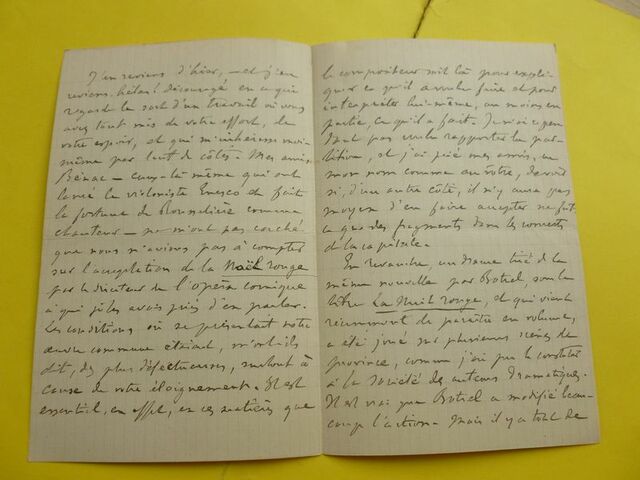 J'en reviens d'hier, — et j'en
reviens, hélas! découragé en ce qui
regarde le sort d'un travail où vous
avez tant mis de votre effort, de
votre espoir, et qui m'intéresse moi-
même par tant de côtés. Mes amis
Bénac — ceux-là même qui ont
lancé le violoniste Enesco et fait
la fortune de comme
chanteur — ne m'ont pas caché
que nous n'avions pas à compter
sur l'acceptation de la Noël rouge
par le directeur de l'opéra comique
à qui je les avais priés d'en parler.
Les conditions où se présentait notre
œuvre commune étaient, m'ont-ils
dit, des plus défectueuses, surtout à
cause de votre éloignement. Il est
essentiel, en effet, en ces matières que
le compositeur soit là pour expli-
quer ce qu'il a voulu faire et pour
interpréter lui-même, au moins en
partie, ce qu'il a fait. Je n'ai cepen-
dant pas voulu rapporter la par-
tition, et j'ai prié mes amis, en
mon nom comme au vôtre, de voir
si, d'un autre côté, il n'y aura pas
moyen d'en faire accepter ne fut-
ce que des fragments dans les concerts
de la capitale.
En revanche, un drame tiré de la
même nouvelle par Botrel, sous le
titre La Nuit rouge, et qui vient
récemment de paraître en volume,
a été joué sur plusieurs scènes de
province, comme j'ai pu le constater
à la Société des auteurs dramatiques.
Il est vrai que Botrel a modifié beau-
coup l'action. Mais il y a tout de